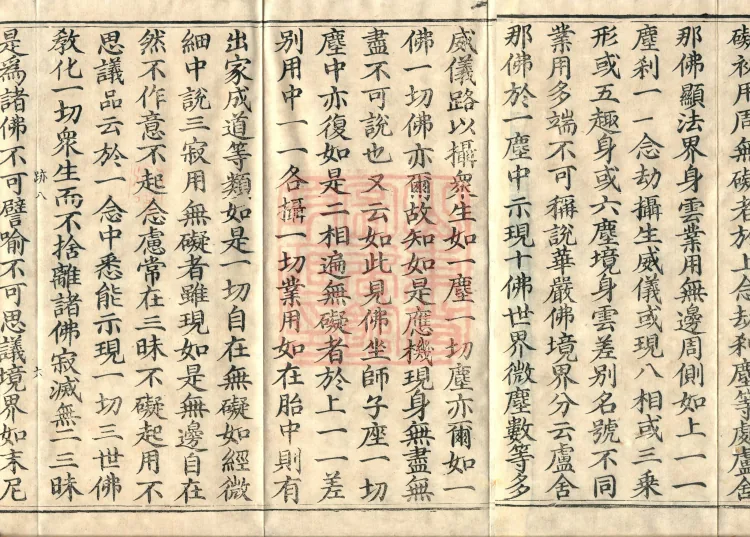 礙初用周無礙者於上念劫刹塵等處盧舍
那佛顯法界身雲業用無邊周側如上一一
塵刹一一念劫攝生威儀或現八相或三乘
形或五趣身或六塵境身雲差別名號不同
業用多端不可稱說華嚴佛境界分云盧舍
那佛於一塵中示現十佛世界微塵數等多
威儀路以攝衆生如一塵一切塵亦爾如一
佛一切佛亦爾故知如是應機現身無盡無
盡不可說也又云如此見佛坐師子座一切
塵中亦復如是二相遍無礙者於上一一差
別用中一一各攝一切業用如在胎中則有
出家成道等類如是一切自在無礙如經微
細中說三寂用無礙者雖現如是無邊自在
然不作意不起念慮常在三昧不礙起用不
思議品云於一念中悉能示現一切三世佛
教化一切衆生而不捨離諸佛寂滅無二三昧
跡八 六
是爲諸佛不可譬喻不可思議境界如末尼